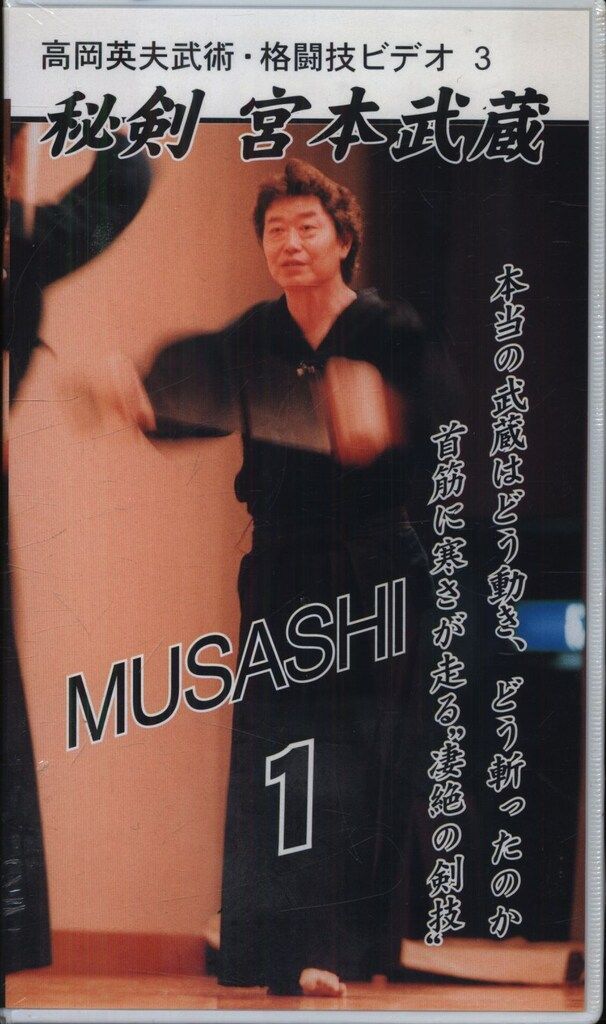 高岡英夫武術・格闘技ビデオ 3
秘剣 宮本武蔵
本当の武蔵はどう動き、どう斬ったのか
首筋に寒さが走る"凄絶の剣技"
MUSASHI
1